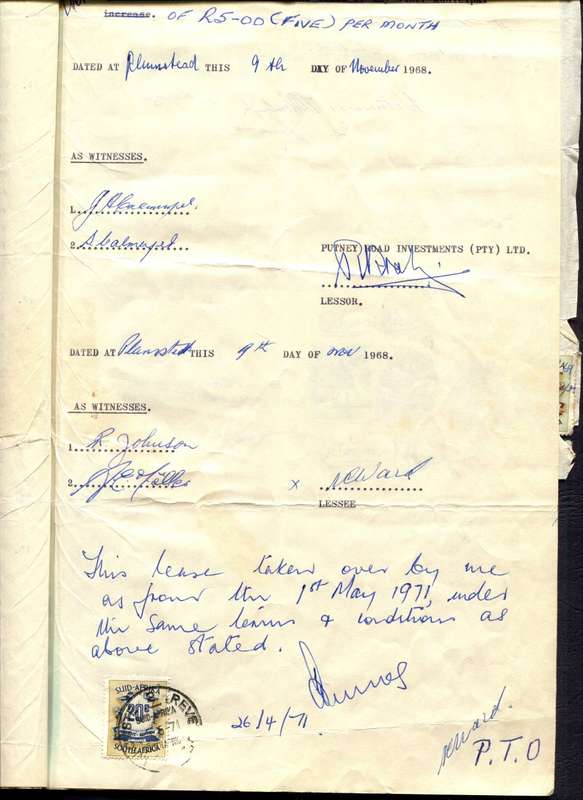 increase. OF R5-00 (FIVE) PER MONTH
DATED AT Plumstead THIS 9th DAY OF November 1968.
AS WITNESSES.
1.
2.
PUTNEY ROAD INVESTMENTS (PTY) LTD.
LESSOR.
DATED AT Plumstead THIS 9th DAY OF NOV 1968.
AS WITNESSES.
1. R Johnson
2.
x NCWard
LESSEE
This lease taken over by me
as from the 1st May 1971, under
the same terms & conditions as
above stated.
26/4/71
Ward.
P.T.O
SUID-AFRIKA
20c
SOUTH AFRICA
REVE